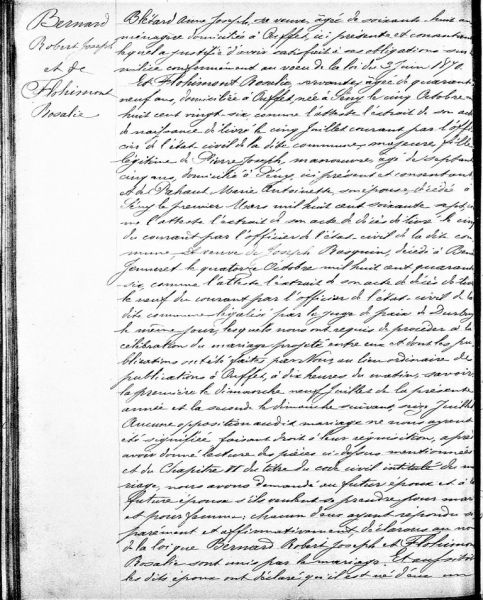 Bernard
Robert Joseph
et de
Flohimont
Rosalie
Blétard Anne Joseph, sa veuve, âgée de soixante huit an
ménagère domiciliée à Ouffet, ici présente et consentant
lequel a justifié d'avoir satisfait à ses obligations sur
milice conformément au vœu de la loi du 3 Juin 1870
Et Flohimont Rosalie, servante, âgée de quarante
neuf ans, domiciliée à Ouffet, née à Sény le cinq Octobre m
huit cent vingt six comme l'atteste l'extrait de son acte
de naissance délivré le cinq Juillet courant par l'offi
cier de l'état civil de la dite commune, majeure, fille
légitime de Pierre Joseph, manœuvre, âgé de septante
cinq ans, domicilié à Sény, ici présent et consentant
et de Marie Antoinette, son épouse, décédée à
Sény le premier Mars mil huit cent soixante sept, com
me l'atteste l'extrait de son acte de décès délivré le cinq
du courant par l'officier de l'état civil de la dite com
mune et veuve de Joseph Basquin, décédé à Bende
Jenneret le quatorze Octobre mil huit cent quarante
six, comme l'atteste l'extrait de son acte de décès délivré
le neuf du courant par l'officier de l'état civil de la
dite commune légalisé par le juge de paix de Durbuy
le même jour, lesquels nous ont requis de procéder à la
célébration du mariage projeté entre eux et dont les pu
blications ont été faites par Nous, au lieu ordinaire des
publications à Ouffet, à dix heures du matin, savoir
la première le dimanche neuf Juillet de la présente
année et la seconde le dimanche suivant, seize Juillet
Aucune opposition au dit mariage ne nous ayant
été signifiée, faisant droit à leur réquisition, après
avoir donné lecture des pièces ci-dessus mentionnées
et du Chapitre VI du titre du code civil intitulé du ma
riage, nous avons demandé au futur époux et à la
future épouse s'ils veulent se prendre pour mari
et pour femme; chacun d'eux ayant répondu sé
parément et affirmativement, déclarons au nom
de la loi que Bernard Robert Joseph et Flohimont
Rosalie sont unis par le mariage. Et aussitôt
les dits époux ont déclaré qu'il est né d'eux un